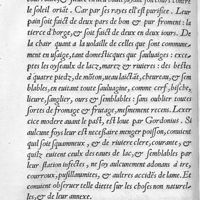 le soleil oriẽt. Car par ses rayes elle est purifiee. Leur
pain soit faict de deux pars de bon & pur froment: la
tierce d'orge, & soit faict de deux en deux iours. De
la chair quant a la uolaille de celles que sont commune-
ment en usaige, tant domesticques que sauluages: exce-
ptés les oyseaulx de lacz, marez, & riuiere: des bestes
à quatre piedz, de moton, ueau laictãt, cheureau, & sem
blables, en euitant toute sauluagine, comme cerf, bische,
lieure, sanglier, ours & semblables: sans oublier toutes
fortes de fromage & fruitage, mesmement recens. L'exer
cice modere auant le past, est loué par Gordonius. Si
aulcune foys leur est necessaire menger poisson, conuient
quil soit squammeux, & de riuiere clere, courante, &
quilz euitent ceulx des eaues de lac, & semblables par
leur station infectes, ne soy aulcunement adonans à ire,
courroux, pusillanimites, & autres accidés de lame. Et
conuient obseruer telle diette sur les choses non naturel-
les, & de leur annexe.